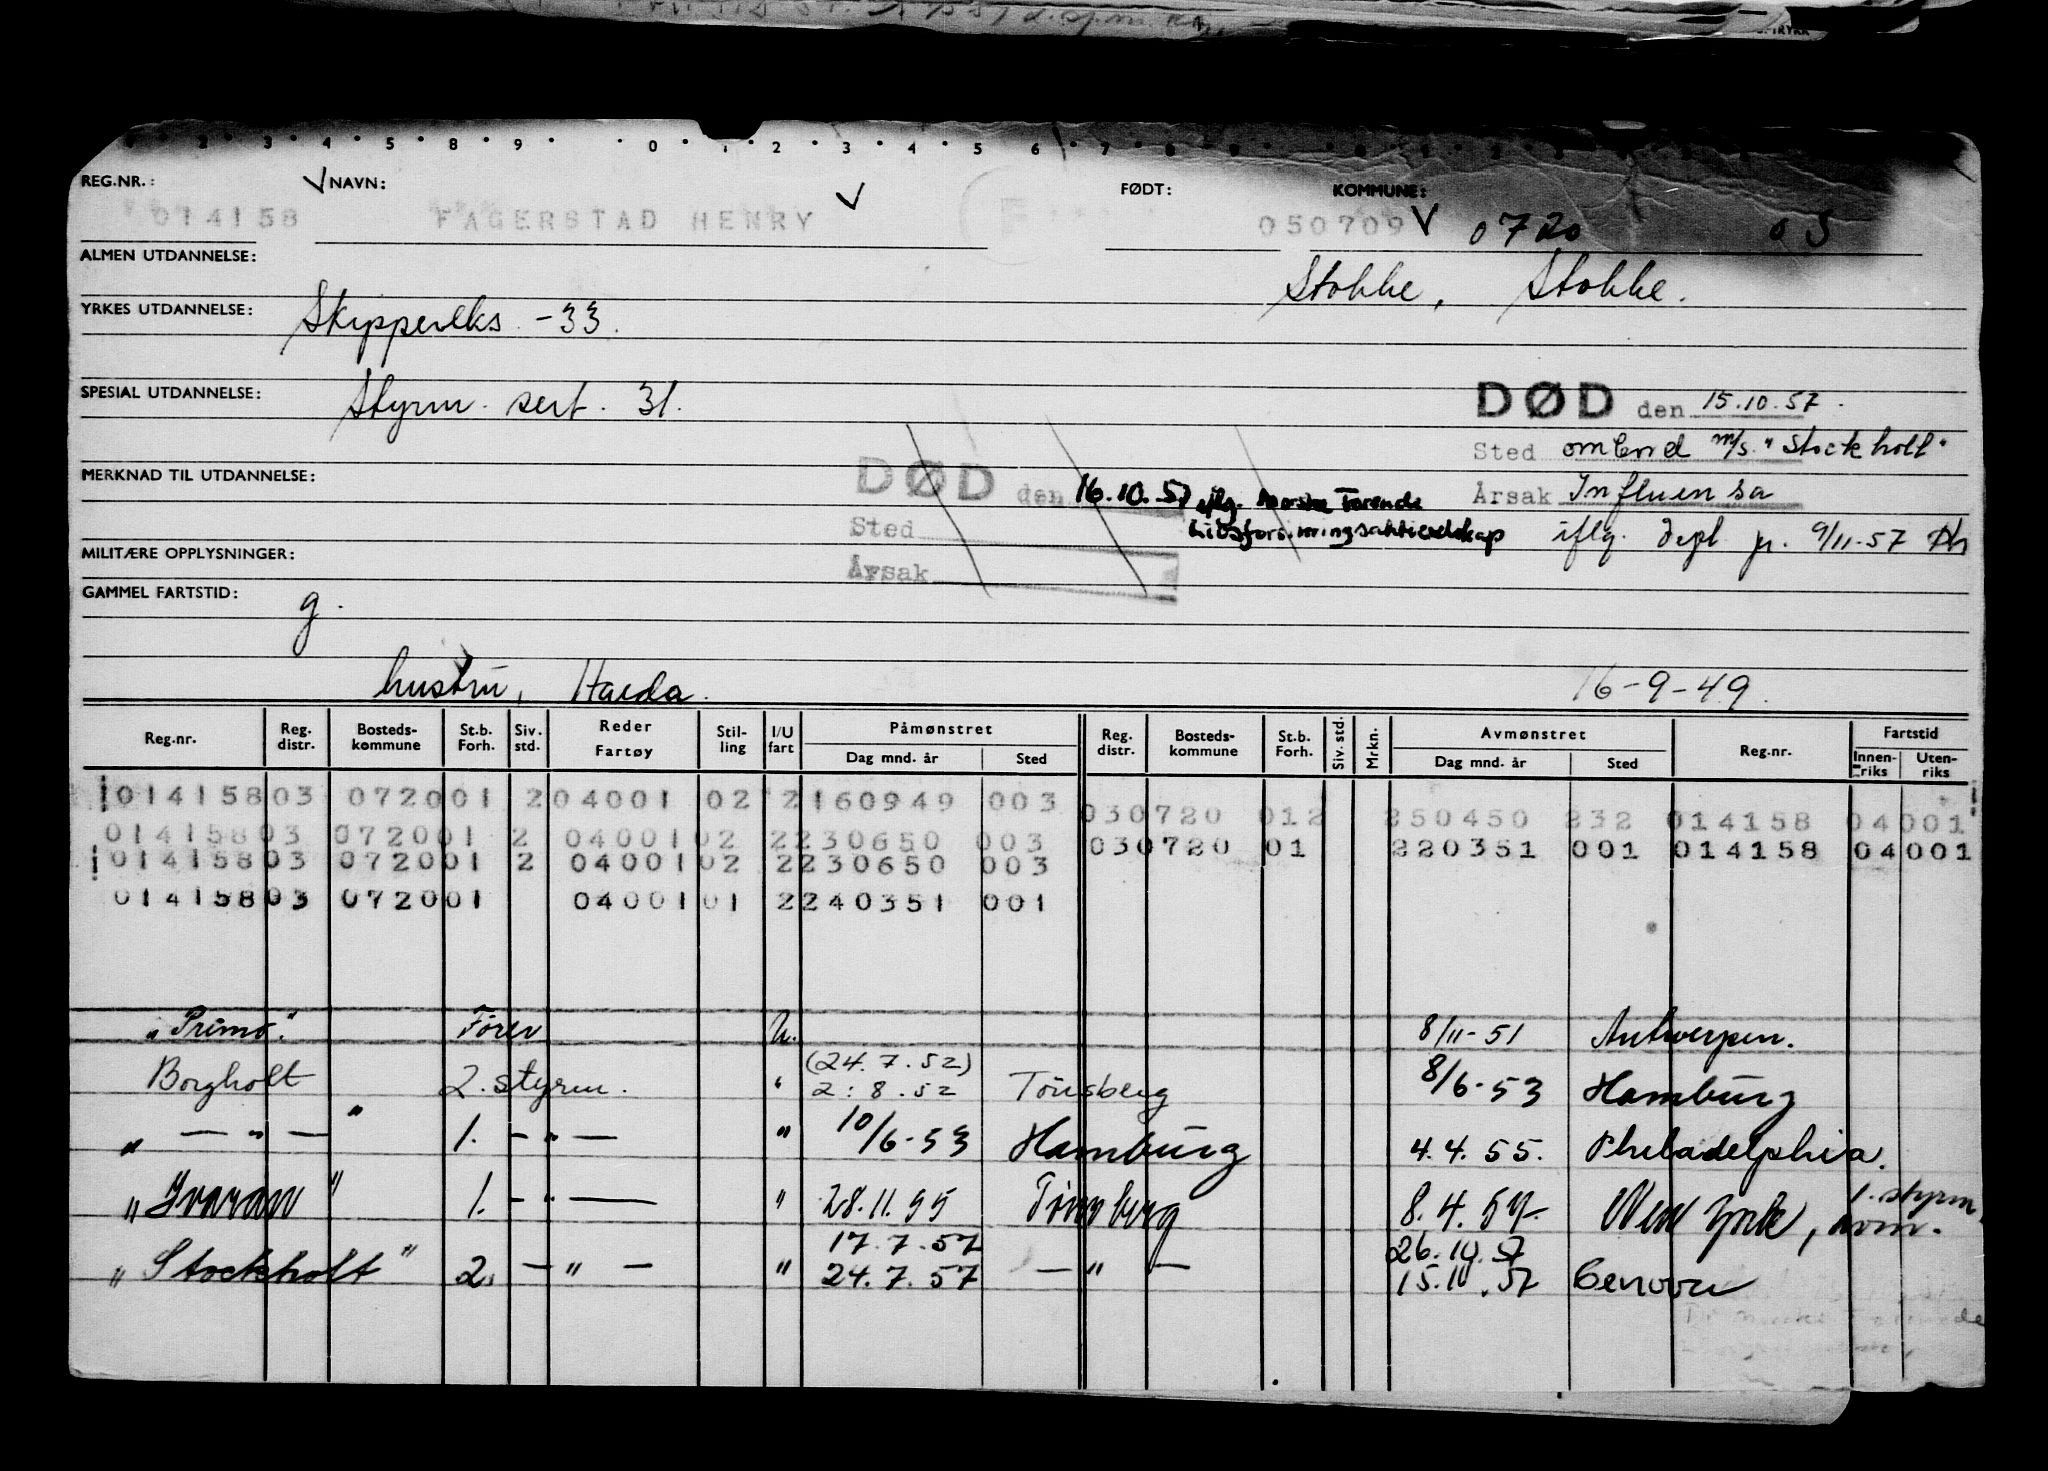 REG.NR.: NAVN: FØDT: KOMMUNE:
014158 FAGERSTAD HENRY 050709 0720 03
ALMEN UTDANNELSE: Stokke, Stokke.
YRKES UTDANNELSE: Skippereks -33.
SPESIAL UTDANNELSE: Styrm. sert. 31.
DØD den 15.10.57.
Sted ombord m/s. "Stockholt"
Årsak Influensa
iflg. dept. 9/11-57
MERKNAD TIL UTDANNELSE:
DØD den 16.10.57 iflg. Norske Forende
Livsforsikringsaktieselskap
Sted
Årsak
MILITÆRE OPPLYSNINGER:
GAMMEL FARTSTID: g.
hustru, 16-9-49.
Reg.nr. Reg. distr. Bosteds-kommune St.b. Forh. Siv. std. Reder Fartøy Stil-ling I/U fart Påmønstret Dag mnd. år Sted Reg. distr. Bosteds-kommune St.b. Forh. Siv. std. Mrkn. Avmønstret Dag mnd. år Sted Reg.nr. Fartstid Innen-riks Uten-riks
014158 03 0720 01 2 04001 02 2 160949 003 03 0720 012 250450 232 014158 04001
014158 03 0720 01 2 04001 02 2 230650 003 03 0720 01 220351 001 014158 04001
014158 03 0720 01 2 04001 02 2 230650 003
014158 03 0720 01 04001 01 2 240351 001
"Primo". Fører U. 8/11-51 Antwerpen.
Borgholt 2. styrm. " (24.7.52) 2:8.52 Tönsberg 8/6-53 Hamburg
" — " — " 1. — " — " 10/6-53 Hamburg 4.4.55. Philadelphia.
"Ivaran" 1. — " — " 28.11.55 Tönsberg 8.4.57. New York, 1. styrm. avm.
17.7.57 26.10.57
"Stockholt" 2. — " — " 24.7.57 — " — 15.10.57 Genova